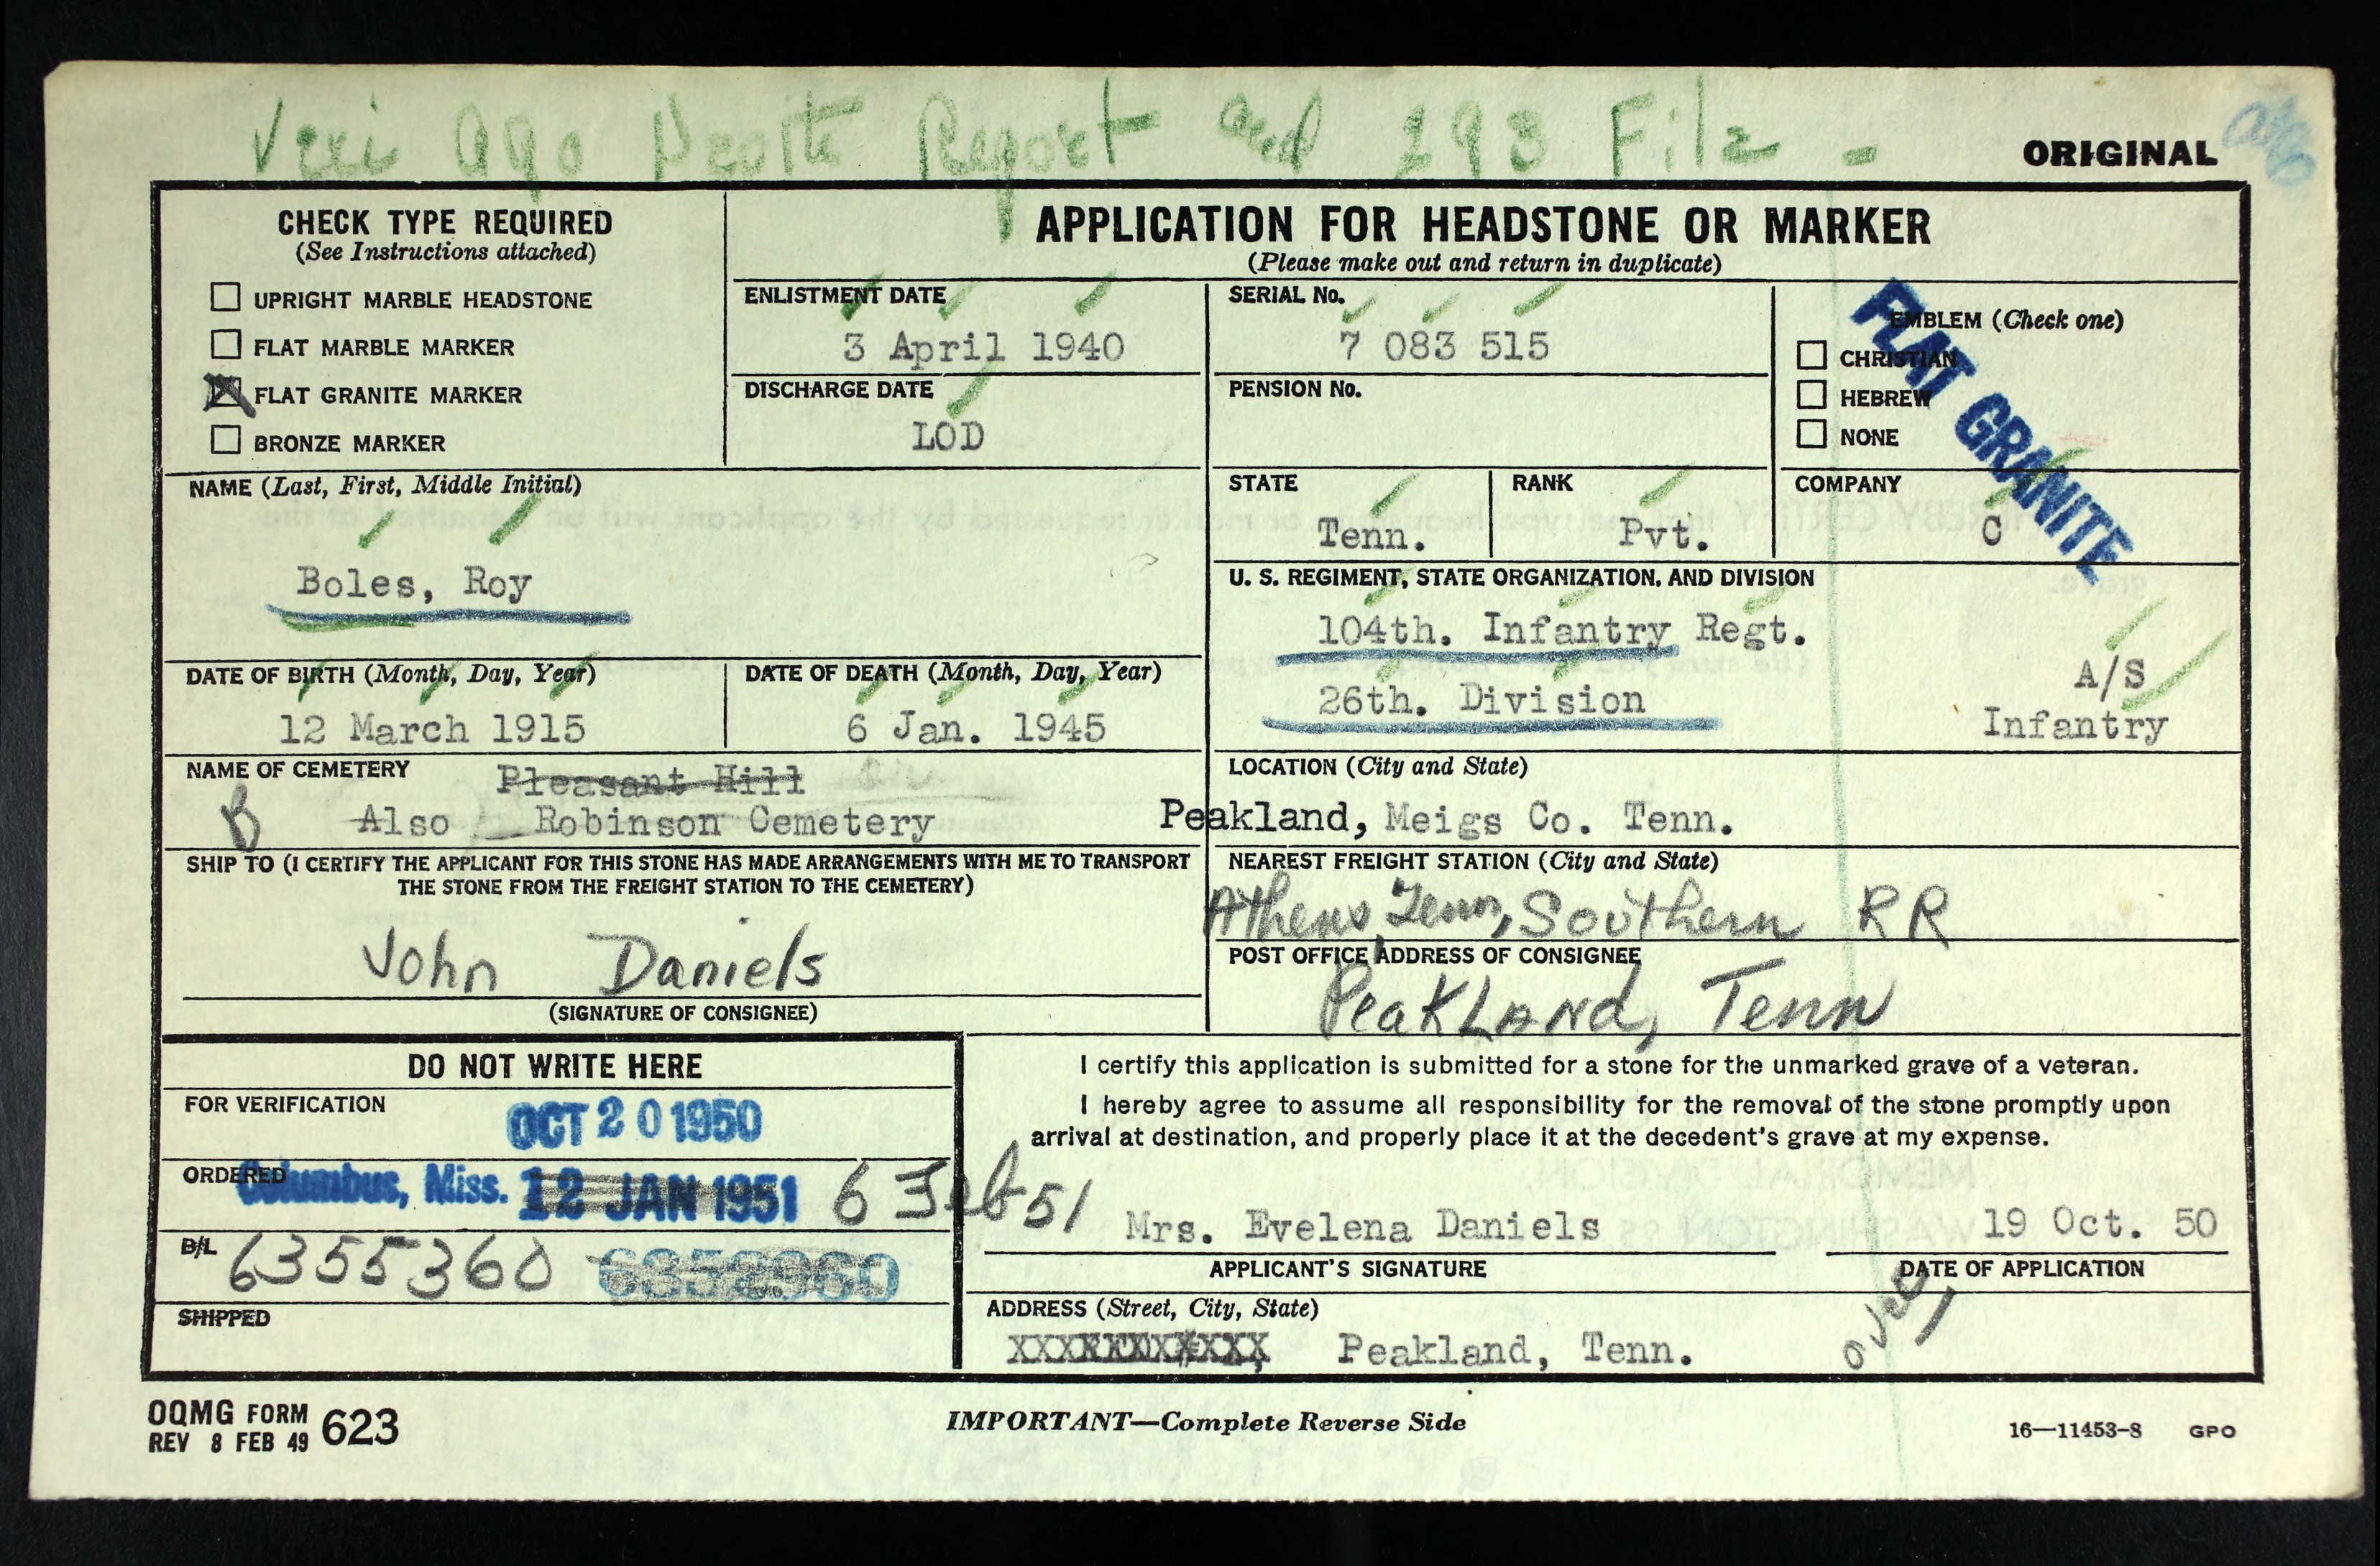 Veri AGO Death Report and 293 File -
ORIGINAL
CHECK TYPE REQUIRED
(See Instructions attached)
UPRIGHT MARBLE HEADSTONE
FLAT MARBLE MARKER
FLAT GRANITE MARKER
BRONZE MARKER
APPLICATION FOR HEADSTONE OR MARKER
(Please make out and return in duplicate)
ENLISTMENT DATE
3 April 1940
DISCHARGE DATE
LOD
SERIAL No.
7 083 515
PENSION No.
EMBLEM (Check one)
CHRISTIAN
HEBREW
NONE
FLAT GRANITE
NAME (Last, First, Middle Initial)
Boles, Roy
STATE
Tenn.
RANK
Pvt.
COMPANY
C
U. S. REGIMENT, STATE ORGANIZATION, AND DIVISION
104th. Infantry Regt.
26th. Division
A/S
Infantry
DATE OF BIRTH (Month, Day, Year)
12 March 1915
DATE OF DEATH (Month, Day, Year)
6 Jan. 1945
NAME OF CEMETERY
Pleasant Hill
B Also Robinson Cemetery
LOCATION (City and State)
Peakland, Meigs Co. Tenn.
SHIP TO (I CERTIFY THE APPLICANT FOR THIS STONE HAS MADE ARRANGEMENTS WITH ME TO TRANSPORT
THE STONE FROM THE FREIGHT STATION TO THE CEMETERY)
John Daniels
(SIGNATURE OF CONSIGNEE)
NEAREST FREIGHT STATION (City and State)
Athens, Tenn, Southern RR
POST OFFICE ADDRESS OF CONSIGNEE
Peakland, Tenn
DO NOT WRITE HERE
FOR VERIFICATION
OCT 20 1950
ORDERED
Columbus, Miss. 12 JAN 1951 6 Feb 51
B/L
6355360
SHIPPED
I certify this application is submitted for a stone for the unmarked grave of a veteran.
I hereby agree to assume all responsibility for the removal of the stone promptly upon
arrival at destination, and properly place it at the decedent's grave at my expense.
Mrs. Evelena Daniels
APPLICANT'S SIGNATURE
19 Oct. 50
DATE OF APPLICATION
ADDRESS (Street, City, State)
Peakland, Tenn.
over
OQMG FORM 623
REV 8 FEB 49
IMPORTANT—Complete Reverse Side
16—11453-8 GPO